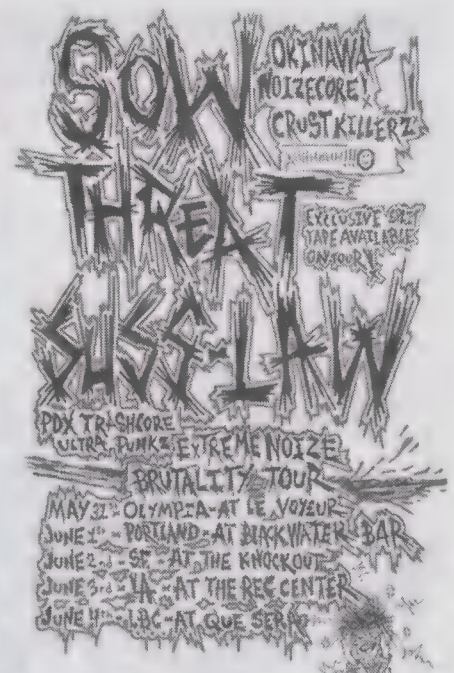 SOW
OKINAWA
NOIZECORE!
CRUSTKILLERZ
THREAT
EXCLUSIVE SPLIT
TAPE AVAILABLE
ON TOUR
SUSS-LAW
PDX TRASHCORE
ULTRA PUNKZ
EXTREME NOIZE
BRUTALITY TOUR
MAY 31st - OLYMPIA - AT LE VOYEUR
JUNE 1st - PORTLAND - AT BLACKWATER BAR
JUNE 2nd - SF - AT THE KNOCKOUT
JUNE 3rd - LA - AT THE REC CENTER
JUNE 4th - LBC - AT QUE SERA